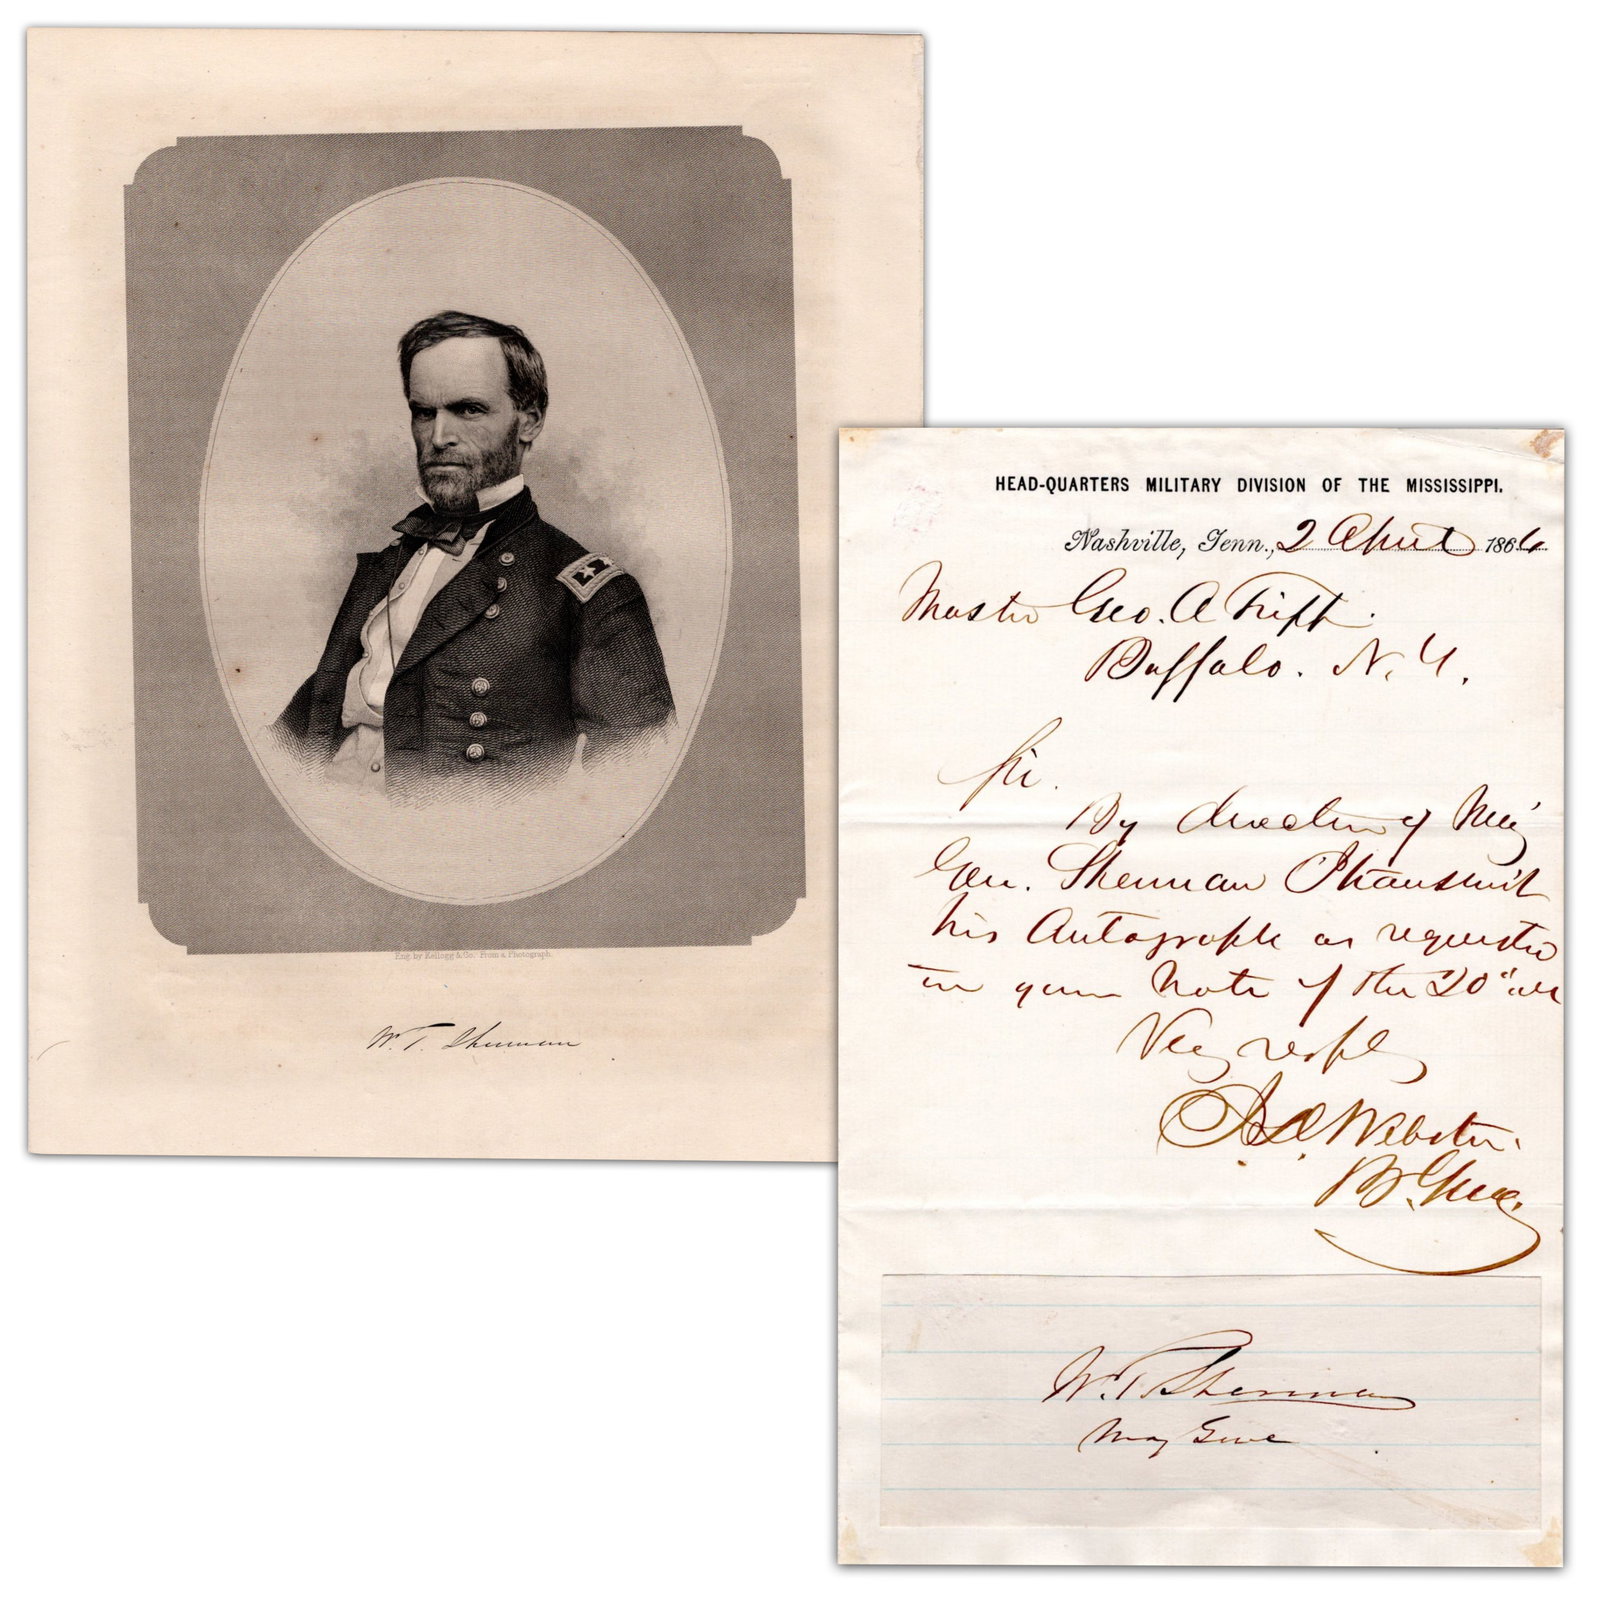 Eng. by Kellogg & Co. From a Photograph.
W. T. Sherman
HEAD-QUARTERS MILITARY DIVISION OF THE MISSISSIPPI.
Nashville, Tenn., 2 April 1864
Master Geo. A Tifft.
Buffalo. N. Y.
Sir.
By direction of Maj
Gen. Sherman I transmit
his Autograph as requested
in your Note of the 20" ult
Very respy
J. D. Webster.
B. Genl.
W. T. Sherman
Maj Genl